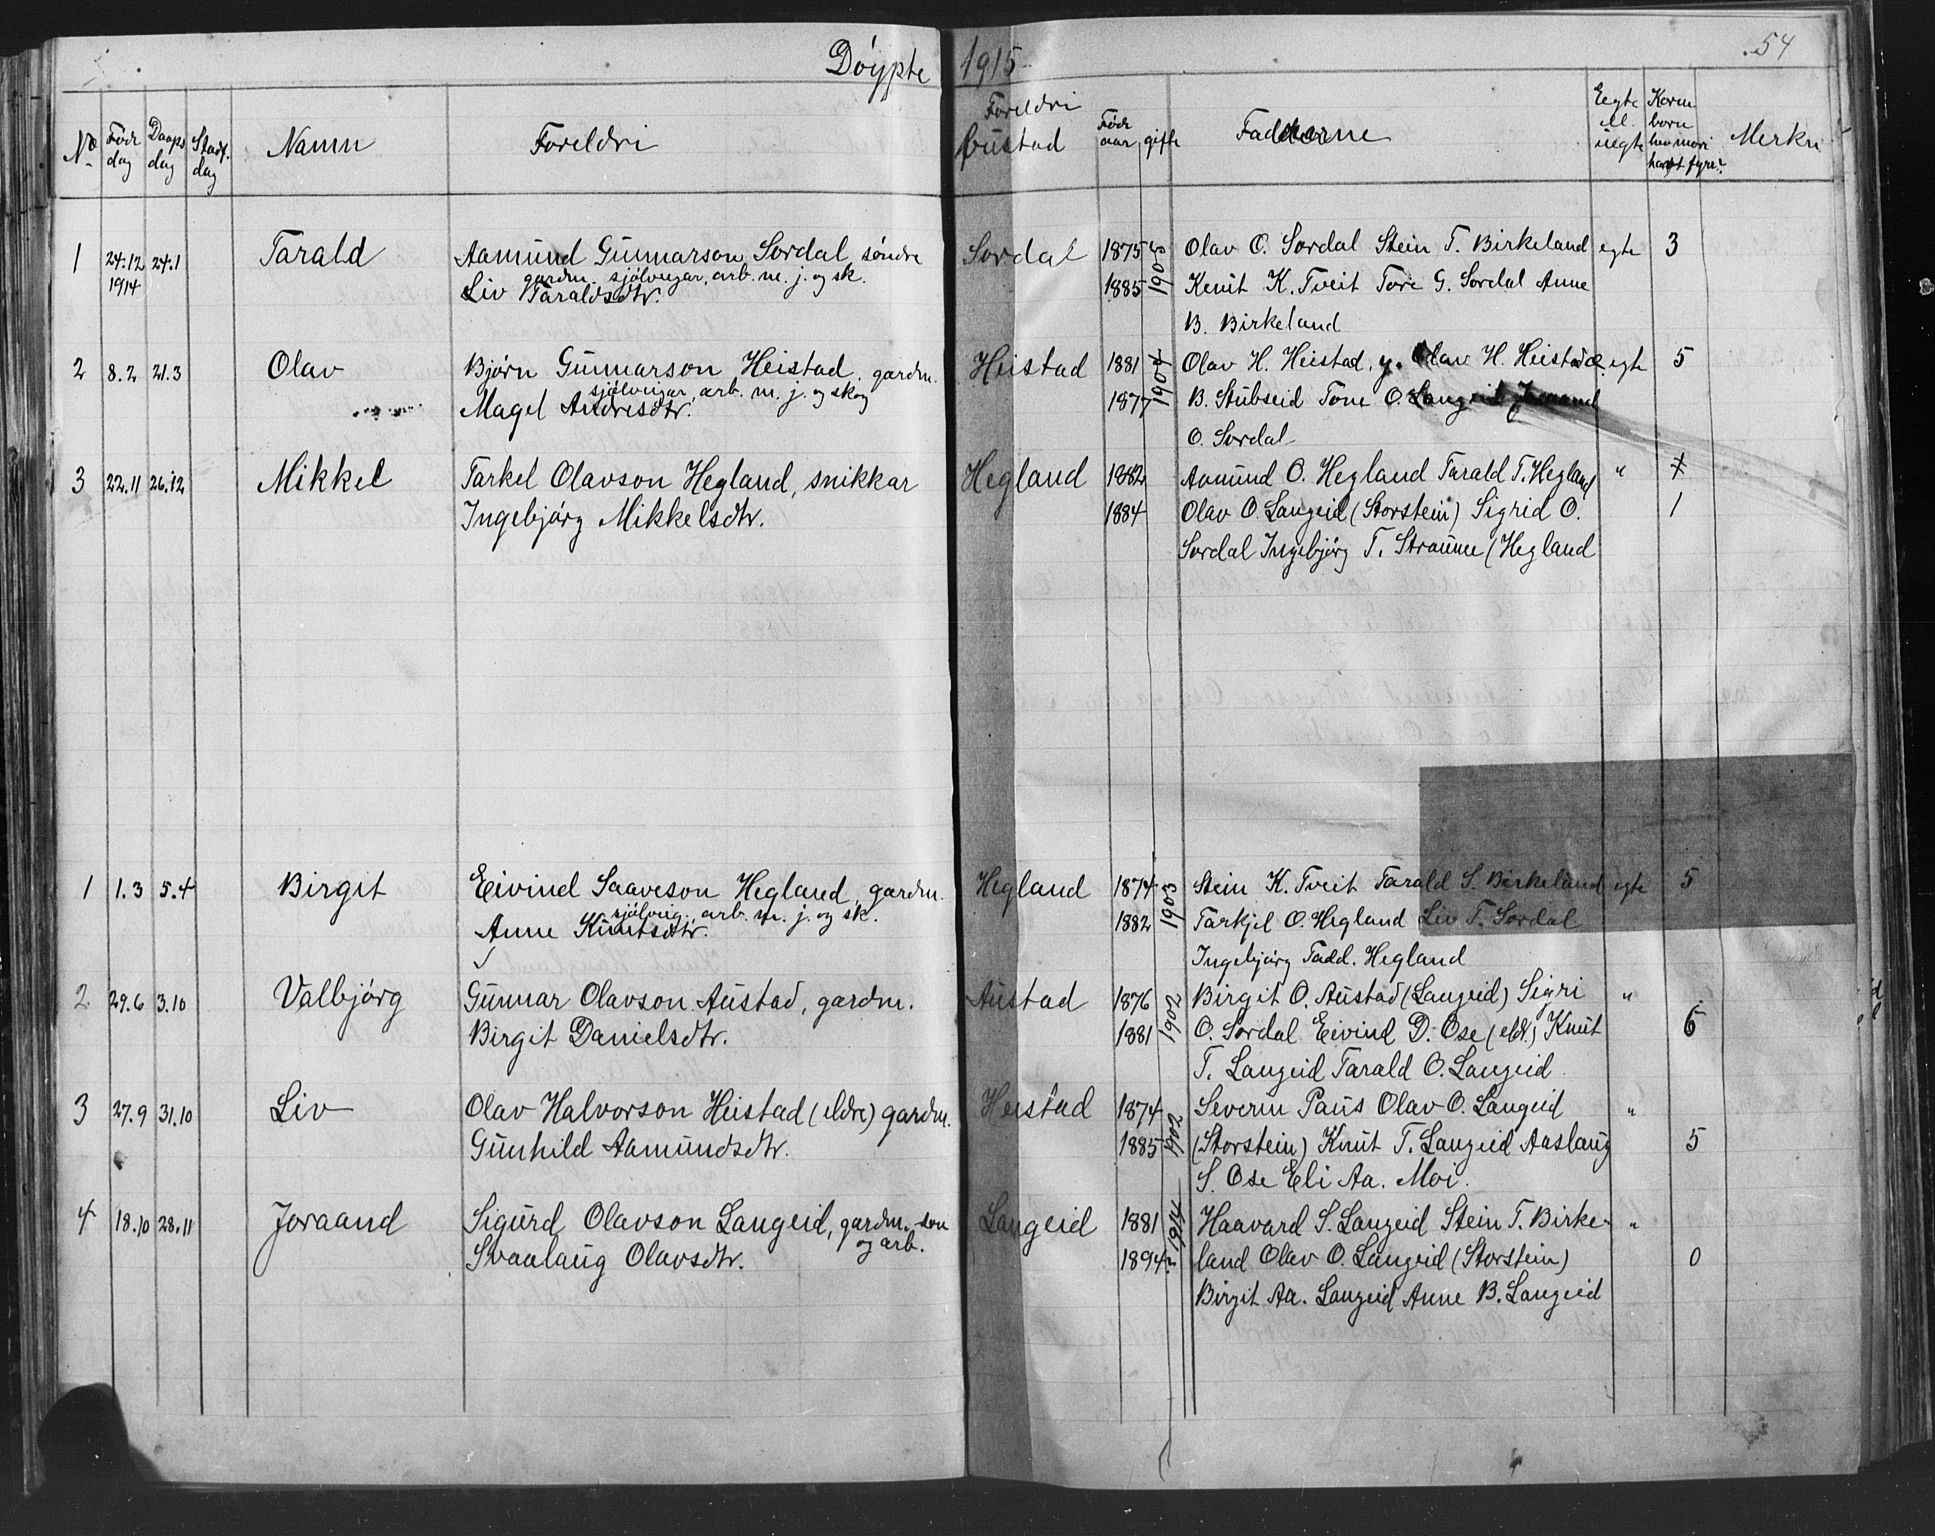 Döypte 1915
54
No Föd dag Daaps dag Stadf. dag Namn Foreldri Foreldri bustad Föde aar gifte Fadderne Egte el. uegte Korm born hev mori havt fyre? Merkn
1 24.12 1914 24.1 Tarald Aamund Gunnarson Sordal, söndre Sordal 1875 1905 Olav O. Sordal Stein T. Birkeland egte 3
gardm. sjölveigar, arb. m. j. og sk.
Liv Taraldsdtr. 1885 Knut K. Tveit Tore G. Sordal Anne
B. Birkeland
2 8.2 21.3 Olav Bjørn Gunnarson Heistad, gardm. Heistad 1881 1904 Olav H. Heistad, y. Olav H. Heistad e. egte 5
sjölveigar, arb. m. j. og skog
Magel Andresdtr. 1877 B. Stubseid Tone O. Langeid Joraand
O. Sordal
3 22.11 26.12 Mikkel Tarkel Olavson Hegland, snikkar Hegland 1882 Aamund O. Hegland Tarald T. Hegland "
Ingebjörg Mikkelsdtr. 1884 Olav O. Langeid (Storstein) Sigrid O. 1
Sordal Ingebjörg T. Straume (Hegland
1 1.3 5.4 Birgit Eivind Saaveson Hegland, gardm. Hegland 1874 1903 Stein K. Tveit Tarald S. Birkeland egte 5
sjölveig., arb. m. j. og sk.
Anne Knutsdtr. 1882 Tarkjel O. Hegland Liv T. Sordal
Ingebjörg Tadd. Hegland
2 29.6 3.10 Valbjörg Gunnar Olavson Austad, gardm. Austad 1876 1902 Birgit O. Austad (Langeid) Sigri "
Birgit Danielsdtr. 1881 O. Sordal Eivind D. Ose (eldr.) Knut 6
T. Langeid Tarald O. Langeid
3 27.9 31.10 Liv Olav Halvorson Heistad (eldre) gardm. Heistad 1874 1902 Severin Paus Olav O. Langeid "
Gunhild Aamundsdtr. 1885 (Storstein) Knut T. Langeid Aaslaug 5
S. Ose Eli Aa. Moi.
4 18.10 28.11 Joraand Sigurd Olavson Langeid, gardm. son Langeid 1881 1914 Haavard S. Langeid Stein T. Birke- "
og arb.
Svaalaug Olavsdtr. 1894 land Olav O. Langeid (Storstein) 0
Birgit Aa. Langeid Anne B. Langeid